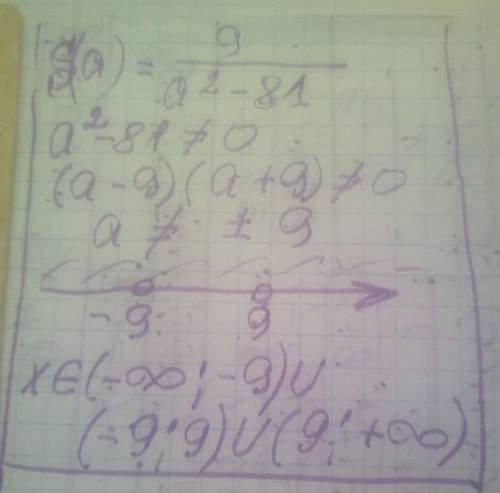 f(a) = 9 / (a² - 81)
a² - 81 ≠ 0
(a - 9)(a + 9) ≠ 0
a ≠ ± 9
-9 9
x ∈ (-∞; -9) ∪
(-9; 9) ∪ (9; +∞)